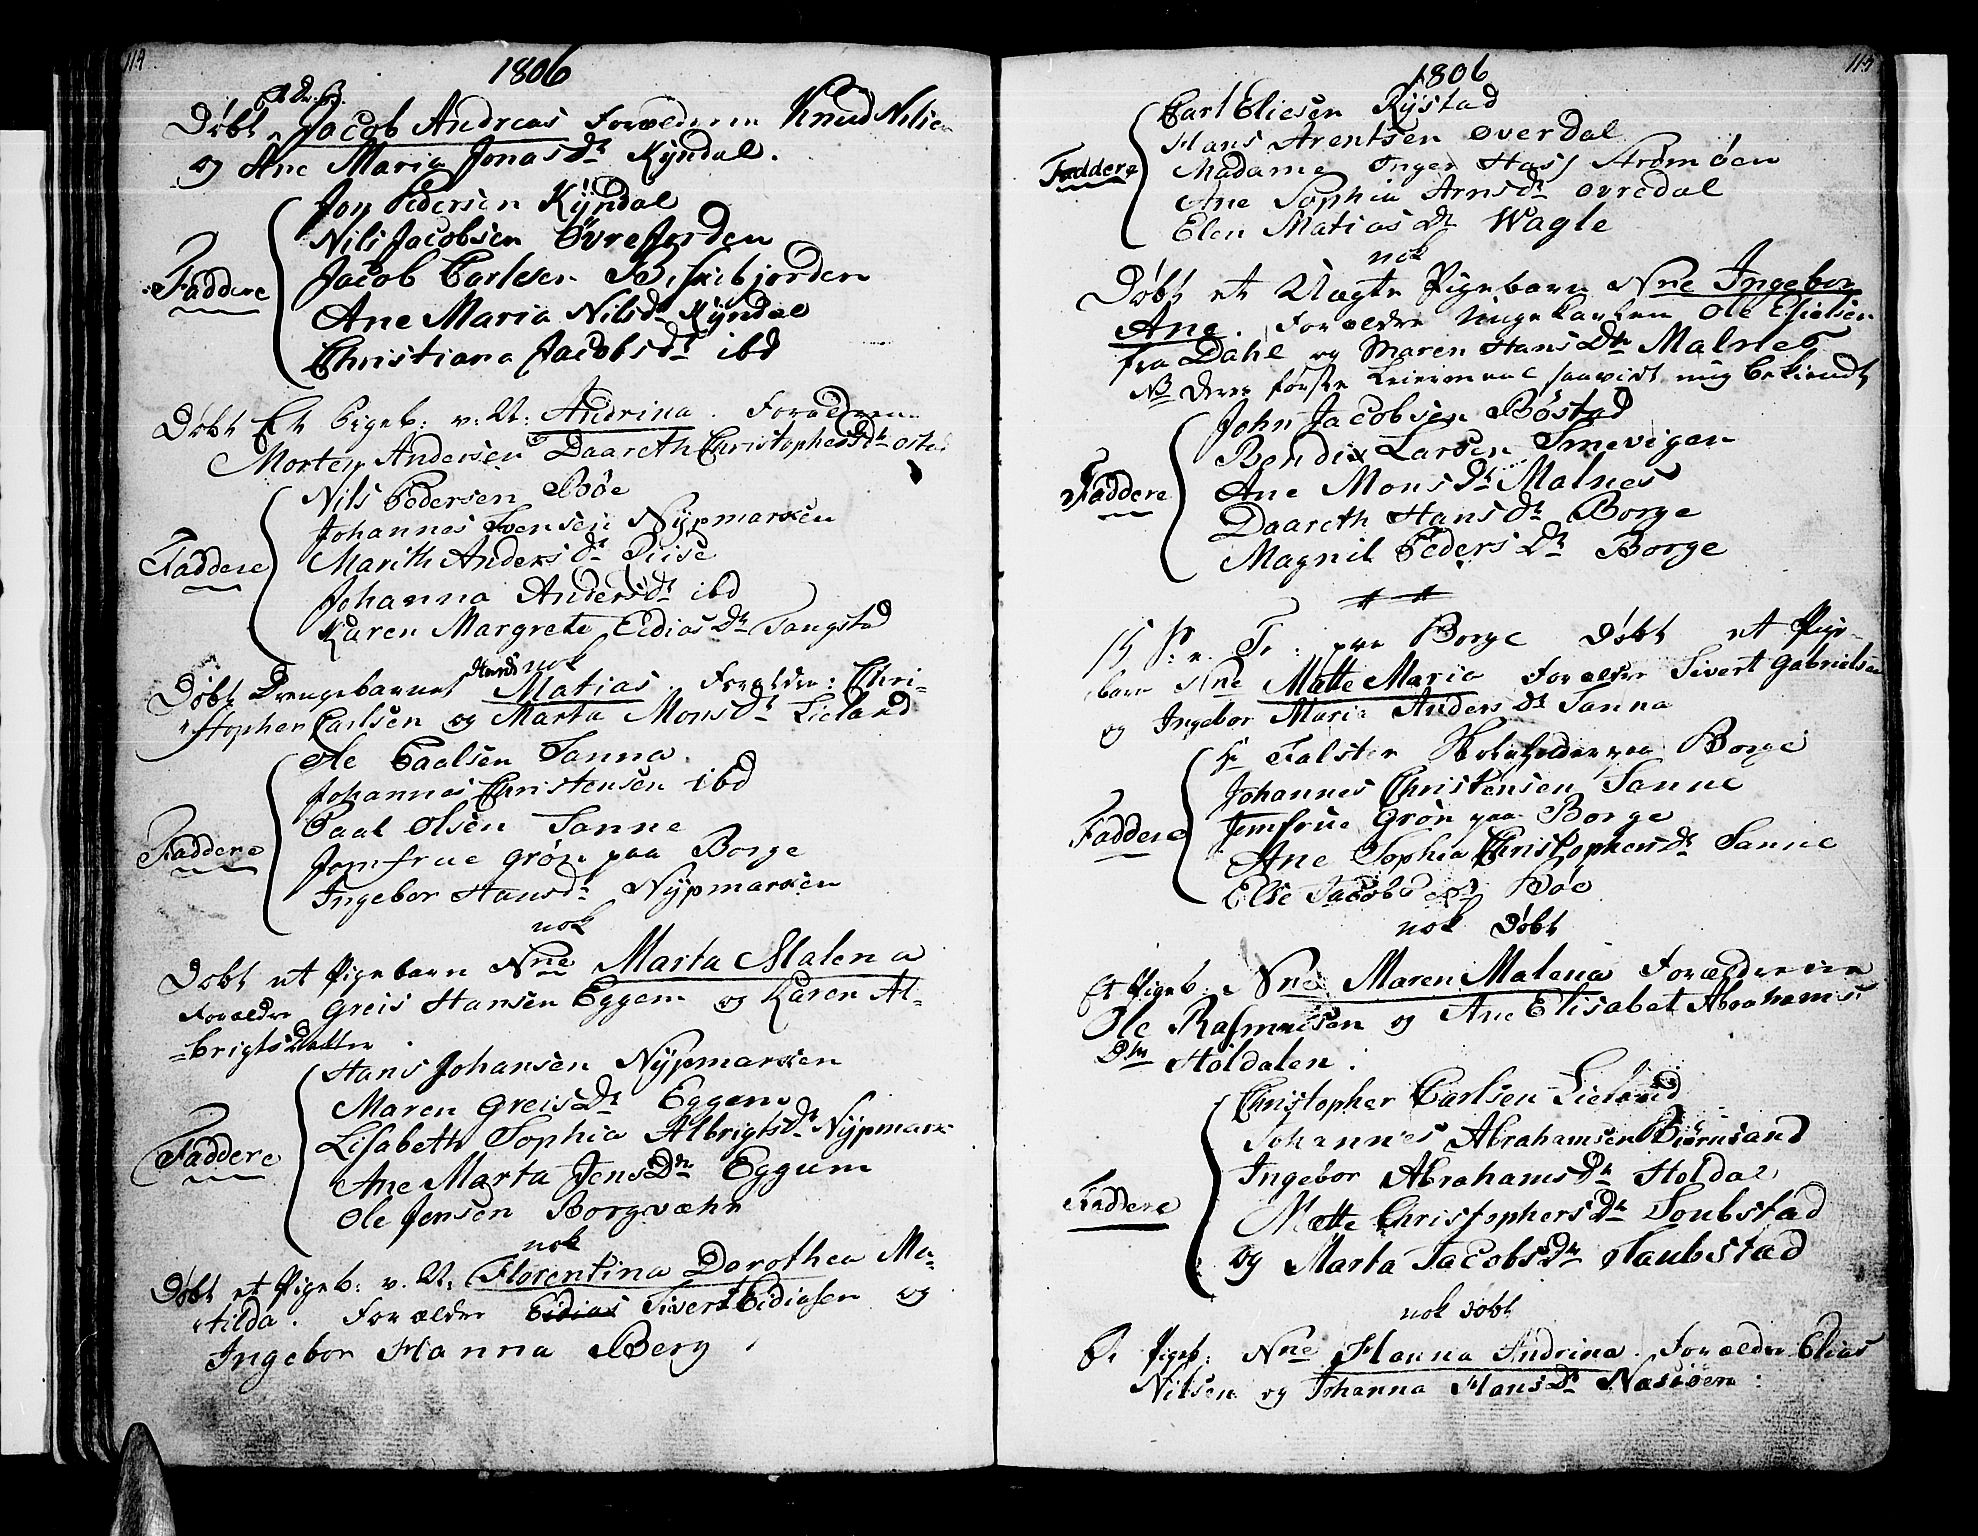 114
1806
Et Dr: B:
Døbt Jacob Andreas Forælderne Knud Nilsen
og Ane Maria Jonas Dr Kyndal.
Jon Pedersen Kyndal
Nils Jacobsen Øvrejorden
Jacob Carlsen Bispejorden
Faddere
Ane Maria Nilsdr Kyndal
Christiana Jacobsdr ibd
Døbt Et Pigeb: v: N: Andrina. Forælderne
Morten Andersen Daareth Christophersdr
Nils Pedersen Bøe
Johannes Svensen Nypmarken
Faddere
Marith Anders Dr Riise
Johanna Anders Dr ibd
Karen Margrete Eedias Dr Tangstad
nok
Døbt Drengebarnet Matias. Forældre: Chri-
stopher Carlsen og Marta Mons Dr Lieland
Ole Paalsen Sanna.
Johannes Christensen ibd
Paal Olsen Sanne
Faddere
Jomfrue Grøn paa Borge
Ingebor Hansdr Nypmarken
nok
Døbt et Pigebarn Nne Marta Malena
Forældre Greis Hansen Eggem og Karen Al-
brigtsdatter.
Hans Johansen Nypmarken
Maren Greis Dr Eggem
Lisabeth Sophia Albrigts Dr Nypmark
Faddere
Ane Marta Jens Dr Eggum
Ole Jensen Borgvæhr
nok
Døbt et Pigeb: v. N: Florentina Dorothea Ma-
tilda. Forældre Eidias Sivert Eidiasen og
Ingebor Hanna Berg
115
1806
Carl Eliesen Rystad
Hans Arentsen Øverdal
Faddere
Madame Inger Hass Strømøen
Ane Sophia Arnsdr Øvredal
Elen Matias Dr Wagle
nok
Døbt et Uægte Pigebarn Nne Ingebor
Ane. Forældre Ungekarlen Ole Elielsen
fra Dahl og Maren Hans Dtr Malnes
NB Deres første Leiermaal saavidt mig bekiendt
John Jacobsen Bøstad
Bendix Larsen Smevigen
Faddere
Ane Mons Dr Malnes
Daareth Hans Dr Borge
Magnil Peders Dr Borge
15 S. e. Tr: paa Borge Døbt et Pige-
barn Nne Mette Maria Forældre Sivert Gabrielsen
og Ingebor Maria Anders Dr Sanna
Hr Falster Skoleholder paa Borge
Johannes Christensen Sanne
Faddere
Jomfrue Grøn paa Borge
Ane Sophia Christophers Dr Sanne
Else Jacobs Dr Bøe
nok Døbt
Et Pigeb: Nne Maren Malena Forælderne
Ole Rasmusen og Ane Elisabet Abrahams
Dtr Holdalen.
Christopher Carlsen Lieland
Johannes Abrahamsen Biørnsand
Ingebor Abrahams Dr Holdal
Faddere
Mette Christophers Dr Soubstad
og Marta Jacobs Dr Haubstad
nok døbt
Et Pigeb: Nne Hanna Andrina. Forældre Elias
Nilsen og Johanna Hans Dr Næsiøen: